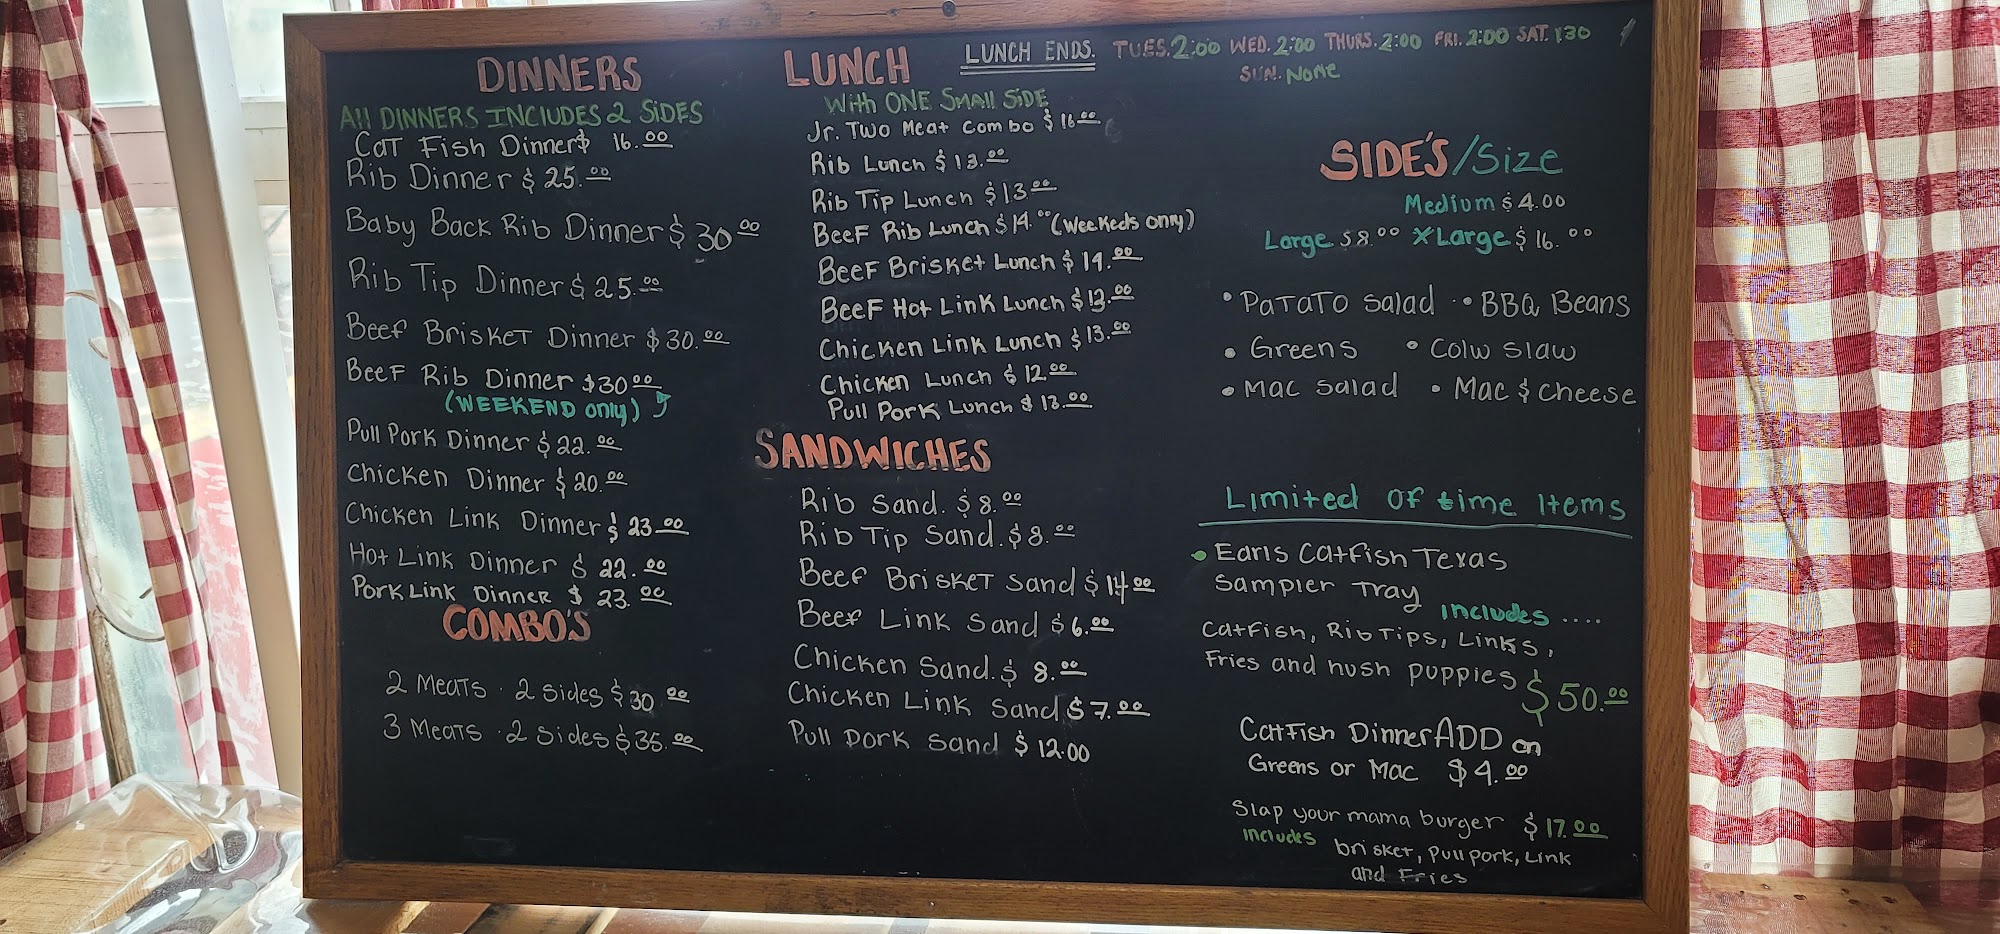 DINNERS
All DINNERS INCLUDES 2 SIDES
Cat Fish Dinner $ 16.00
Rib Dinner $ 25.00
Baby Back Rib Dinner $ 30 00
Rib Tip Dinner $ 25.00
Beef Brisket Dinner $ 30.00
Beef Rib Dinner $30 00
(WEEKEND only)
Pull Pork Dinner $ 22.00
Chicken Dinner $ 20.00
Chicken Link Dinner $ 23.00
Hot Link Dinner $ 22.00
Pork Link Dinner $ 23.00
COMBO'S
2 Meats · 2 sides $ 30 00
3 Meats · 2 sides $ 35.00
LUNCH
LUNCH ENDS. TUES. 2:00 WED. 2:00 THURS. 2:00 FRI. 2:00 SAT. 1:30
SUN. None
With ONE Small Side
Jr. Two Meat Combo $ 16 00
Rib Lunch $ 13.00
Rib Tip Lunch $ 13 00
Beef Rib Lunch $ 14.00 (weekeds only)
Beef Brisket Lunch $ 14.00
Beef Hot Link Lunch $ 13.00
Chicken Link Lunch $ 13.00
Chicken Lunch $ 12 00
Pull Pork Lunch $ 13.00
SANDWICHES
Rib Sand. $ 8.00
Rib Tip Sand. $ 8.00
Beef Brisket Sand $ 14 00
Beef Link Sand $ 6.00
Chicken Sand. $ 8.00
Chicken Link Sand $ 7.00
Pull Pork Sand $ 12.00
SIDE'S/Size
Medium $ 4.00
Large $ 8.00 XLarge $ 16.00
• Patato Salad • BBQ Beans
• Greens • Colw Slaw
• Mac Salad • Mac & Cheese
Limited Of time Items
• Earls Catfish Texas
Sampler Tray
includes ....
Catfish, Rib Tips, Links,
Fries and hush puppies
$ 50.00
Catfish Dinner ADD on
Greens or Mac $ 4.00
Slap your mama burger $ 17.00
includes brisket, pull pork, Link
and Fries